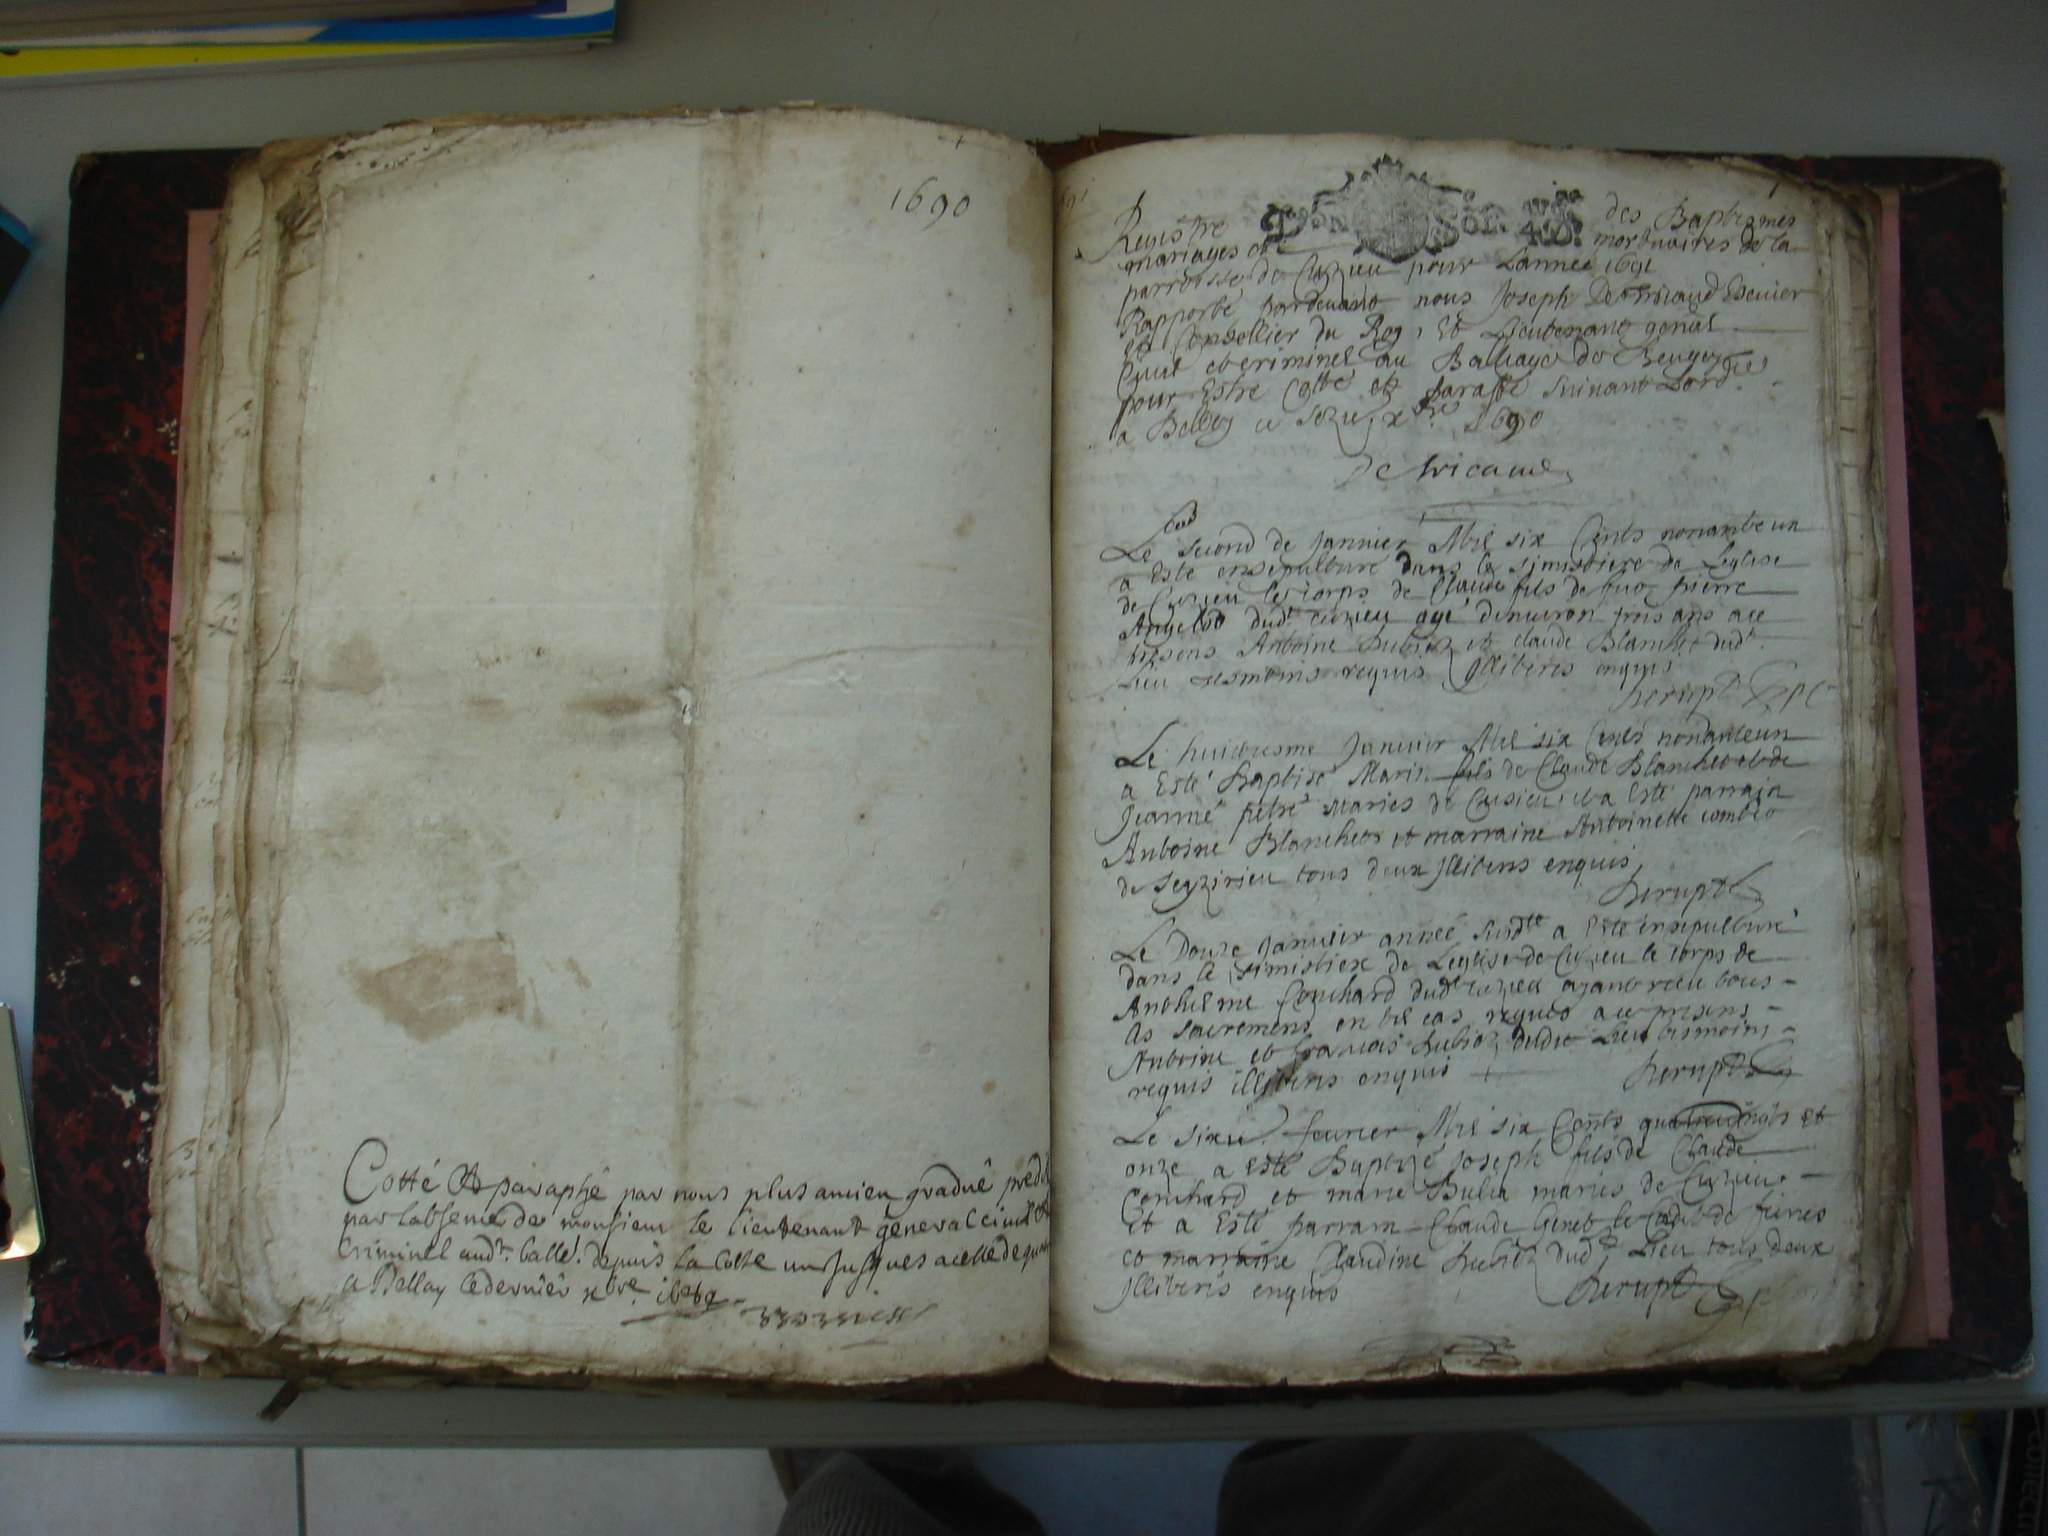 1690
Cotté & paraphé par nous plus ancien gradué
par labsence de monsieur le lieutenant general civil &
Criminel aud. balle. depuis la cotte un jusques a celle de
a Bellay le dernier xbre. 1689
1
Registre des Baptesmes
mariages et mortuaires de la
parroisse de Cuzieu pour Lannee 1691
Rapporté pardevant nous Joseph De Tricaud Escuier
et Conseller du Roy, Et Lieutenant genãl
Civil et criminel au Balliage de Beugey
pour Estre Cotté et paraffé suivant Lord.
a Belley ce xbre 1690
De Tricaud
Le second de Janvier Mil six Cents nonante un
a Esté ensepulturé dans le simistiere de Leglise
de Cuzieu le corps de Claude fils de feu pierre
Angelot dud. cuzieu agé denviron trois ans a ce
presens Antoine et Claude Blanchet dud.
Lieu tesmoins requis Jlliteres enquis
Le huictiesme Janvier Mil six Cents nonante un
a Esté Baptisé Marin fils de Claude Blanchet et de
Jeanne mariés de Cusieu, et a Esté parrain
Antoine Blanchet et marraine Antoinette
de Seyzirieu tous deux Jlliteres enquis
Le Douze Janvier année susdte a Esté ensepulturé
dans le simistiere de Leglise de Cuzieu le corps de
Anthelme Couchard dud. cuzieu ayant receu tous
les sacremens en tel cas requis a ce presens
Antoine et francois dudit Lieu tesmoins
requis illiteres enquis
Le fevrier Mil six Cents quatrevingts et
onze a Esté Baptizé Joseph fils de Claude
Couchard et marie mariés de Cuzieu
Et a Esté parrain Claude Genet le Cadet de
et marraine Claudine dud. Lieu tous deux
Jlliteres enquis